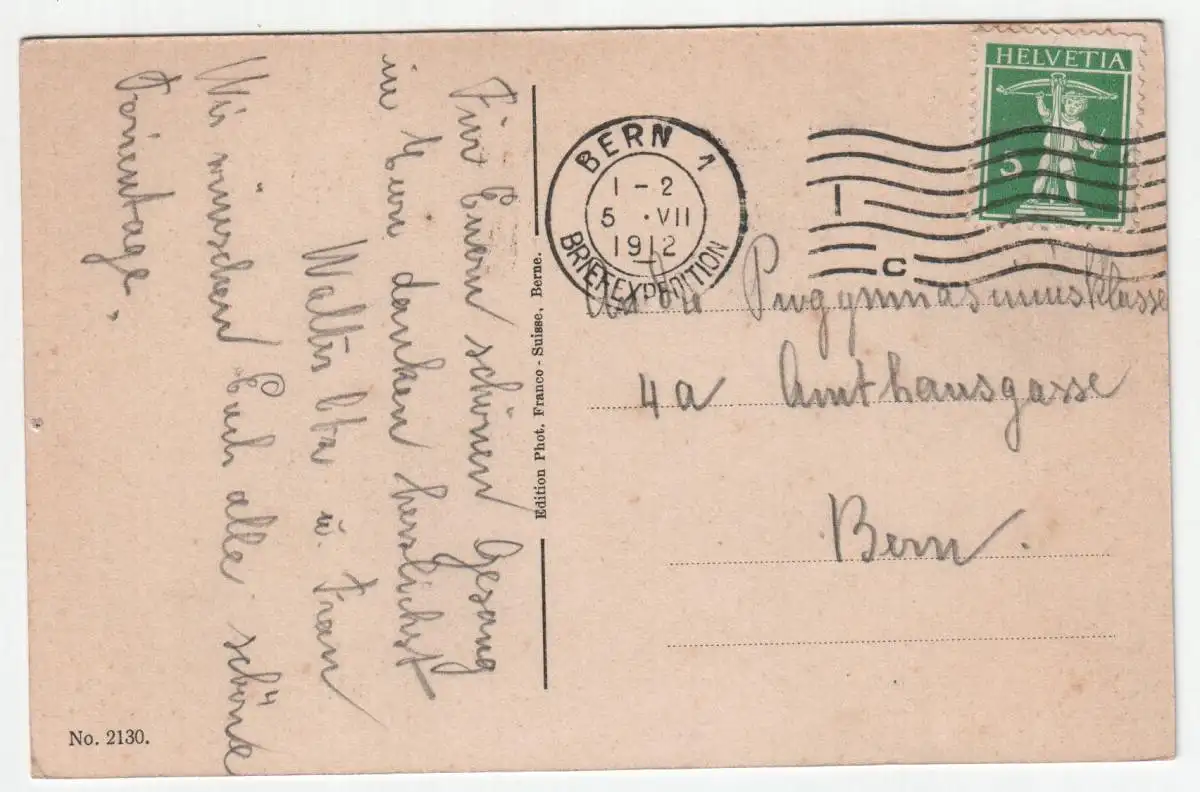 Für Euern schönen Gesang
in Bern danken herzlichst
Walter u. Frau
Wir wünschen Euch alle schöne
Ferientage.
Edition Phot. Franco-Suisse, Berne.
No. 2130.
HELVETIA
5
BERN 1
1-2
5 ·VII
1912
BRIEFEXPEDITION
I
C
Progymnasiumsklasse
4a Amthausgasse
Bern.